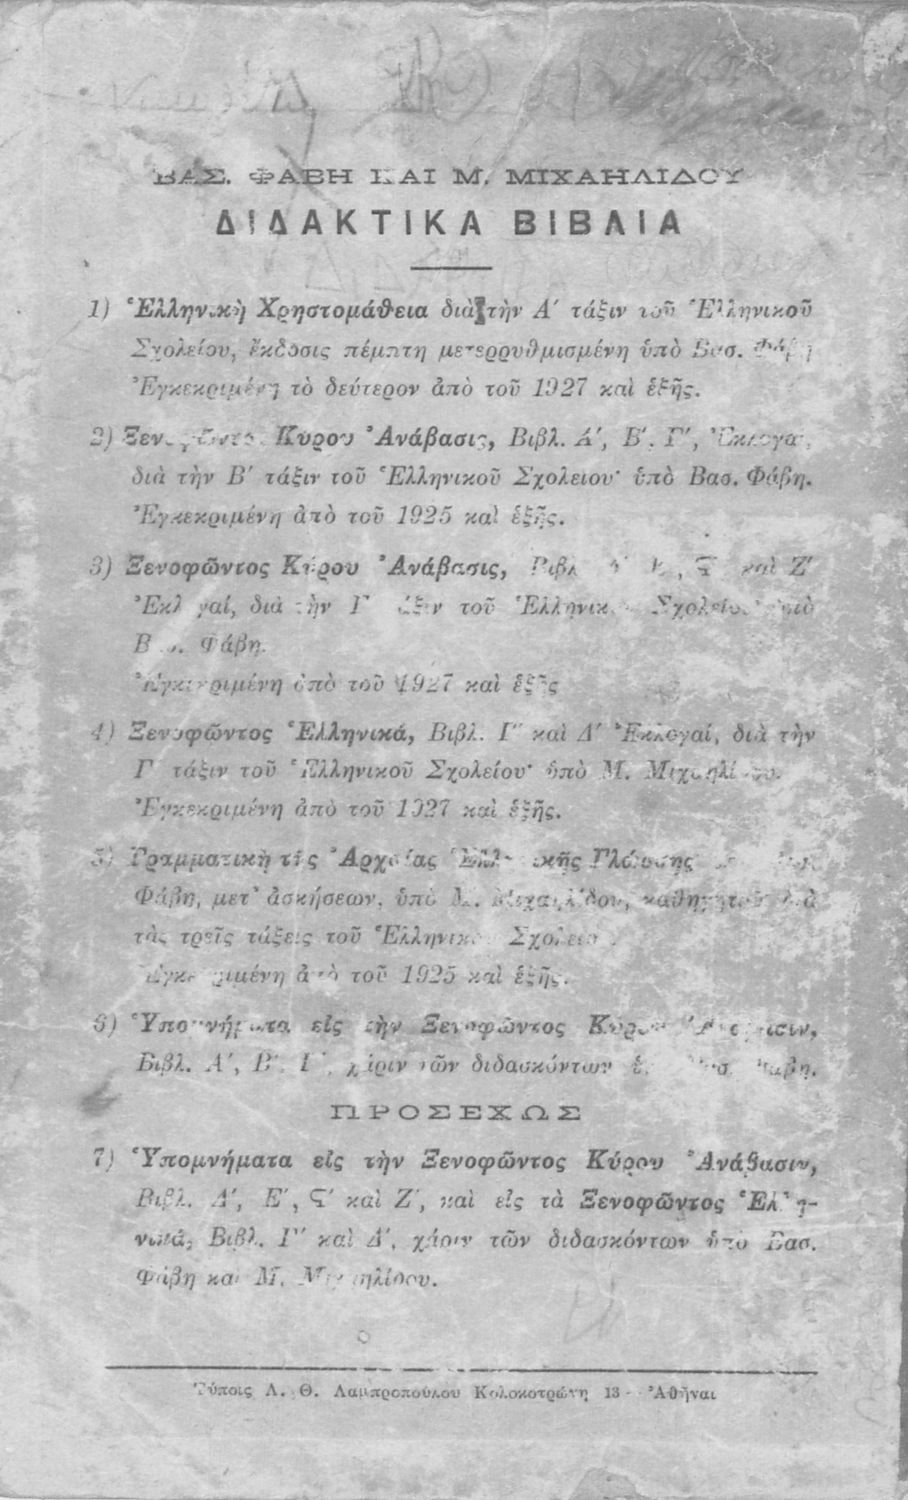 ΒΑΣ. ΦΑΒΗ ΚΑΙ Μ. ΜΙΧΑΗΛΙΔΟΥ
ΔΙΔΑΚΤΙΚΑ ΒΙΒΛΙΑ
1) Ἑλληνικὴ Χρηστομάθεια διὰ τὴν Α′ τάξιν τοῦ Ἑλληνικοῦ
Σχολείου, ἔκδοσις πέμπτη μετερρυθμισμένη ὑπὸ Βασ. Φάβη
Ἐγκεκριμένη τὸ δεύτερον ἀπὸ τοῦ 1927 καὶ ἑξῆς.
2) Ξενοφῶντος Κύρου Ἀνάβασις, Βιβλ. Α′, Β′, Γ′, Ἐκλογαί,
διὰ τὴν Β′ τάξιν τοῦ Ἑλληνικοῦ Σχολείου· ὑπὸ Βασ. Φάβη.
Ἐγκεκριμένη ἀπὸ τοῦ 1925 καὶ ἑξῆς.
3) Ξενοφῶντος Κύρου Ἀνάβασις, Βιβλ. καὶ Ζ′
Ἐκλογαί, διὰ τὴν Γ′ τάξιν τοῦ Ἑλληνικοῦ Σχολείου ὑπὸ
Βασ. Φάβη.
Ἐγκεκριμένη ἀπὸ τοῦ 1927 καὶ ἑξῆς
4) Ξενοφῶντος Ἑλληνικά, Βιβλ. Γ′ καὶ Δ′ Ἐκλογαί, διὰ τὴν
Γ′ τάξιν τοῦ Ἑλληνικοῦ Σχολείου· ὑπὸ Μ. Μιχαηλίδου.
Ἐγκεκριμένη ἀπὸ τοῦ 1927 καὶ ἑξῆς.
5) Γραμματικὴ τῆς Ἀρχαίας Ἑλληνικῆς Γλώσσης
Φάβη, μετ' ἀσκήσεων, ὑπὸ Μ. Μιχαηλίδου, καθηγητοῦ διὰ
τὰς τρεῖς τάξεις τοῦ Ἑλληνικοῦ Σχολείου.
Ἐγκεκριμένη ἀπὸ τοῦ 1925 καὶ ἑξῆς.
6) Ὑπομνήματα εἰς τὴν Ξενοφῶντος Κύρου Ἀνάβασιν,
Βιβλ. Α′, Β′, Γ′, χάριν τῶν διδασκόντων ὑπὸ Βασ. Φάβη.
ΠΡΟΣΕΧΩΣ
7) Ὑπομνήματα εἰς τὴν Ξενοφῶντος Κύρου Ἀνάβασιν,
Βιβλ. Δ′, Ε′, Ϛ′ καὶ Ζ′, καὶ εἰς τὰ Ξενοφῶντος Ἑλλη-
νικά, Βιβλ. Γ′ καὶ Δ′, χάριν τῶν διδασκόντων ὑπὸ Βασ.
Φάβη καὶ Μ. Μιχαηλίδου.
Τύποις Λ. Θ. Λαμπροπούλου Κολοκοτρώνη 13 - Ἀθῆναι